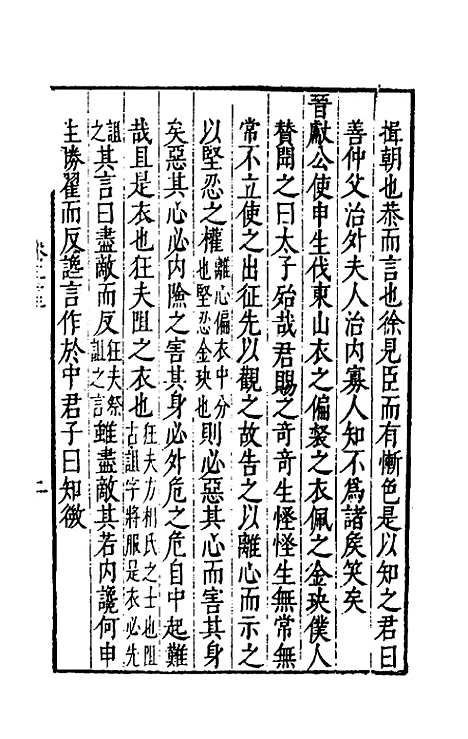 揖朝也恭而言也徐見臣而有慚色是以知之君曰
善仲父治外夫人治内寡人知不為諸矦笑矣
晉獻公使申生伐東山衣之偏裻之衣佩之金玦僕人
賛聞之曰太子殆哉君賜之奇奇生怪怪生無常無
常不立使之出征先以觀之故告之以離心而示之
以堅忍之權離心偏衣中分也堅忍金玦也則必惡其心而害其身
矣惡其心必内險之害其身必外危之危自中起難
哉且是衣也狂夫阻之衣也狂夫方相氏之士也阻古詛字將服是衣必先
詛之其言曰盡敵而反狂夫祭詛之言雖盡敵其若内讒何申
生勝翟而反讒言作於中君子曰知微
二